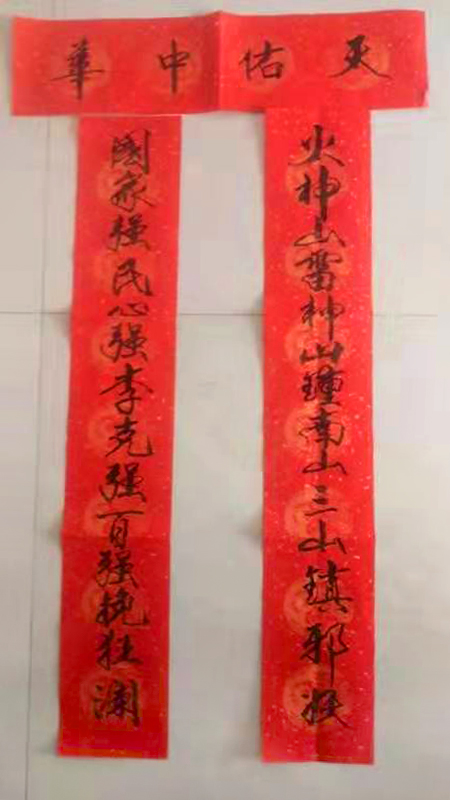 天佑中華
火神山雷神山鍾南山三山鎮邪
國家强民心强李克强百强挽狂澜